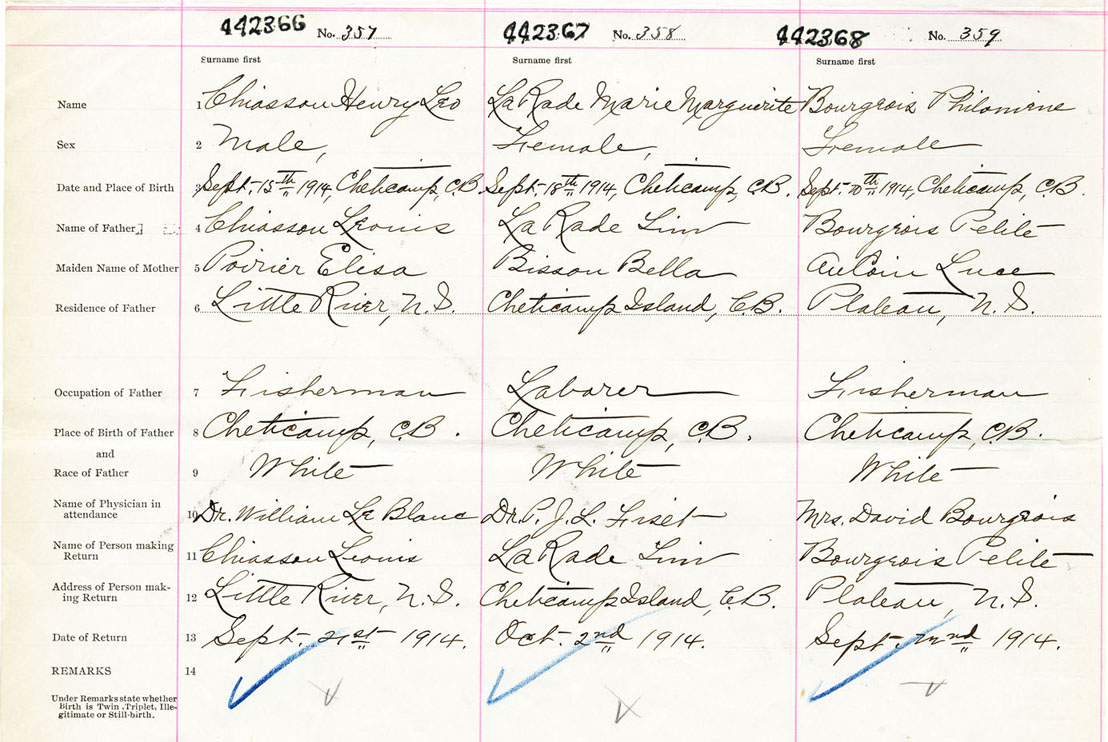 442366 No. 357 442367 No. 358 442368 No. 359
Surname first Surname first Surname first
Name 1 Chiasson Henry Leo LaRade Marie Marguerite Bourgeois Philomene
Sex 2 Male, Female, Female
Date and Place of Birth 3 Sept. 15th 1914, Cheticamp, C.B. Sept. 18th 1914, Cheticamp, C.B. Sept. 20th 1914, Cheticamp, C.B.
Name of Father 4 Chiasson Leonis LaRade Bourgeois Pelite
Maiden Name of Mother 5 Poirier Elisa Bisson Bella AuCoin Luce
Residence of Father 6 Little River, N.S. Cheticamp Island, C.B. Plateau, N.S.
Occupation of Father 7 Fisherman Laborer Fisherman
Place of Birth of Father 8 Cheticamp, C.B. Cheticamp, C.B. Cheticamp, C.B.
and
Race of Father 9 White White White
Name of Physician in
attendance 10 Dr. William Le Blanc Dr. P. J. L. Fiset Mrs. David Bourgeois
Name of Person making
Return 11 Chiasson Leonis LaRade Bourgeois Pelite
Address of Person mak-
ing Return 12 Little River, N.S. Cheticamp Island, C.B. Plateau, N.S.
Date of Return 13 Sept. 21st 1914. Oct. 2nd 1914. Sept. 22nd 1914.
REMARKS 14
Under Remarks state whether
Birth is Twin, Triplet, Ille-
gitimate or Still-birth.